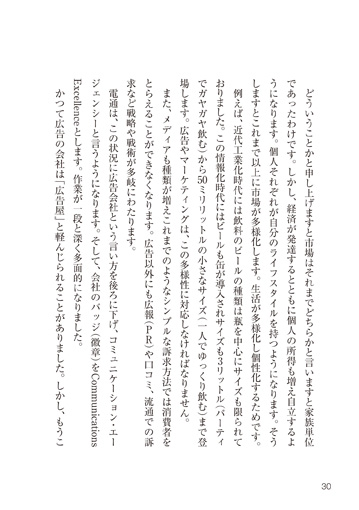 どういうことかと申し上げますと市場はそれまでどちらかと言いますと家族単位
であったわけです。しかし、経済が発達するとともに個人の所得も増え自立するよ
うになります。個人それぞれが自分のライフスタイルを持つようになります。そう
しますとこれまで以上に市場が多様化します。生活が多様化し個性化するためです。
例えば、近代工業化時代には飲料のビールの種類は瓶を中心にサイズも限られて
おりました。この情報化時代にはビールも缶が導入されサイズも3リットル（パーティ
でガヤガヤ飲む）から50ミリリットルの小さなサイズ（一人でゆっくり飲む）まで登
場します。広告やマーケティングは、この多様性に対応しなければなりません。
また、メディアも種類が増えこれまでのようなシンプルな訴求方法では消費者を
とらえることができなくなります。広告以外にも広報（PR）や口コミ、流通での訴
求など戦略や戦術が多岐にわたります。
電通は、この状況に広告会社という言い方を後ろに下げ、コミュニケーション・エー
ジェンシーと言うようになります。そして、会社のバッジ（徽章）をCommunications
Excellenceとします。作業が一段と深く多面的になりました。
かつて広告の会社は「広告屋」と軽んじられることがありました。しかし、もうこ
30